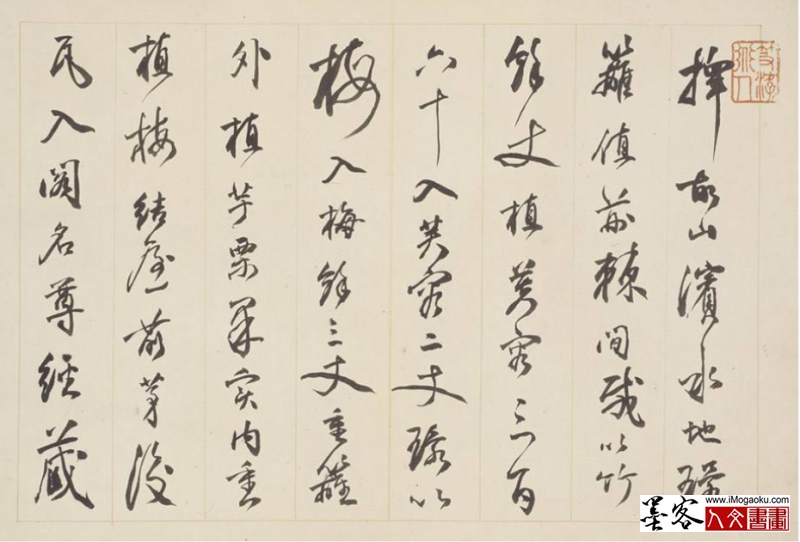 擇故山濱水地環
籬植荊棘間栽以竹
餘丈植芙蓉三百
六十入芙蓉二丈環以
梅入梅餘三丈重籬
外植芋栗果實內重
植梅結屋前茅後
瓦入閣名尊經藏
www.iMogaoku.com
墨客人文書畫